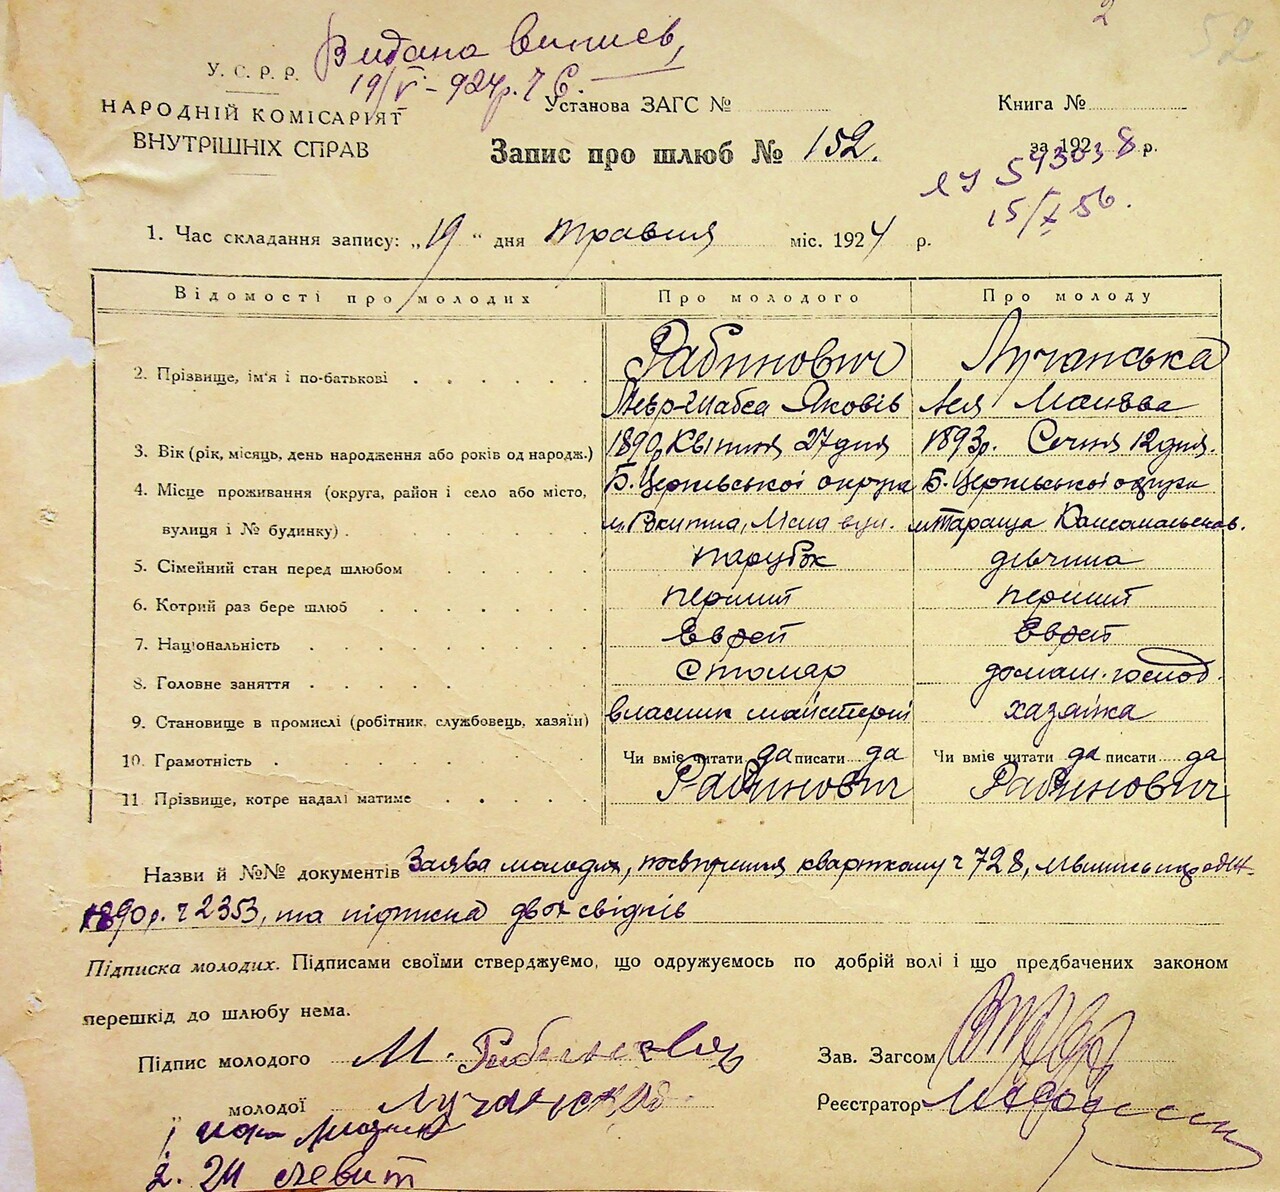 2
52
Видана випись,
19/V - 924 р. ч 6.
У. С. Р. Р.
НАРОДНІЙ КОМІСАРІЯТ
ВНУТРІШНІХ СПРАВ
Установа ЗАГС №
Книга №
за 192 р.
Запис про шлюб № 152.
543038
15/X 56.
1. Час складання запису: „19" дня травня міс. 1924 р.
Відомості про молодих Про молодого Про молоду
2. Прізвище, ім'я і по-батькові Рабинович Лучанська
Меєр-Шабса Яковів Лея
3. Вік (рік, місяць, день народження або років од народж.) 1890р Квітня 27 дня 1893р. Січня 12 дня.
4. Місце проживання (округа, район і село або місто, Б. Церківської округи Б. Церківської округи
вулиця і № будинку) м. Рокитна, вул. м Тараща
5. Сімейний стан перед шлюбом парубок дівчина
6. Котрий раз бере шлюб перший перший
7. Національність Еврей Еврей
8. Головне заняття Столяр домаш. господ.
9. Становище в промислі (робітник. службовець, хазяїн) власник майстерні хазяйка
10. Грамотність Чи вміє читати да писати да Чи вміє читати да писати да
11. Прізвище, котре надалі матиме Рабинович Рабинович
Назви й №№ документів Заява молодих, посвідчення квартхому ч 728,
1890 р. ч 2353, та підписка двох свідків
Підписка молодих. Підписами своїми стверджуємо, що одружуємось по добрій волі і що предбачених законом
перешкід до шлюбу нема.
Підпис молодого М. Рабинович Зав. Загсом
„ молодої Лучанская Реєстратор
1
2.